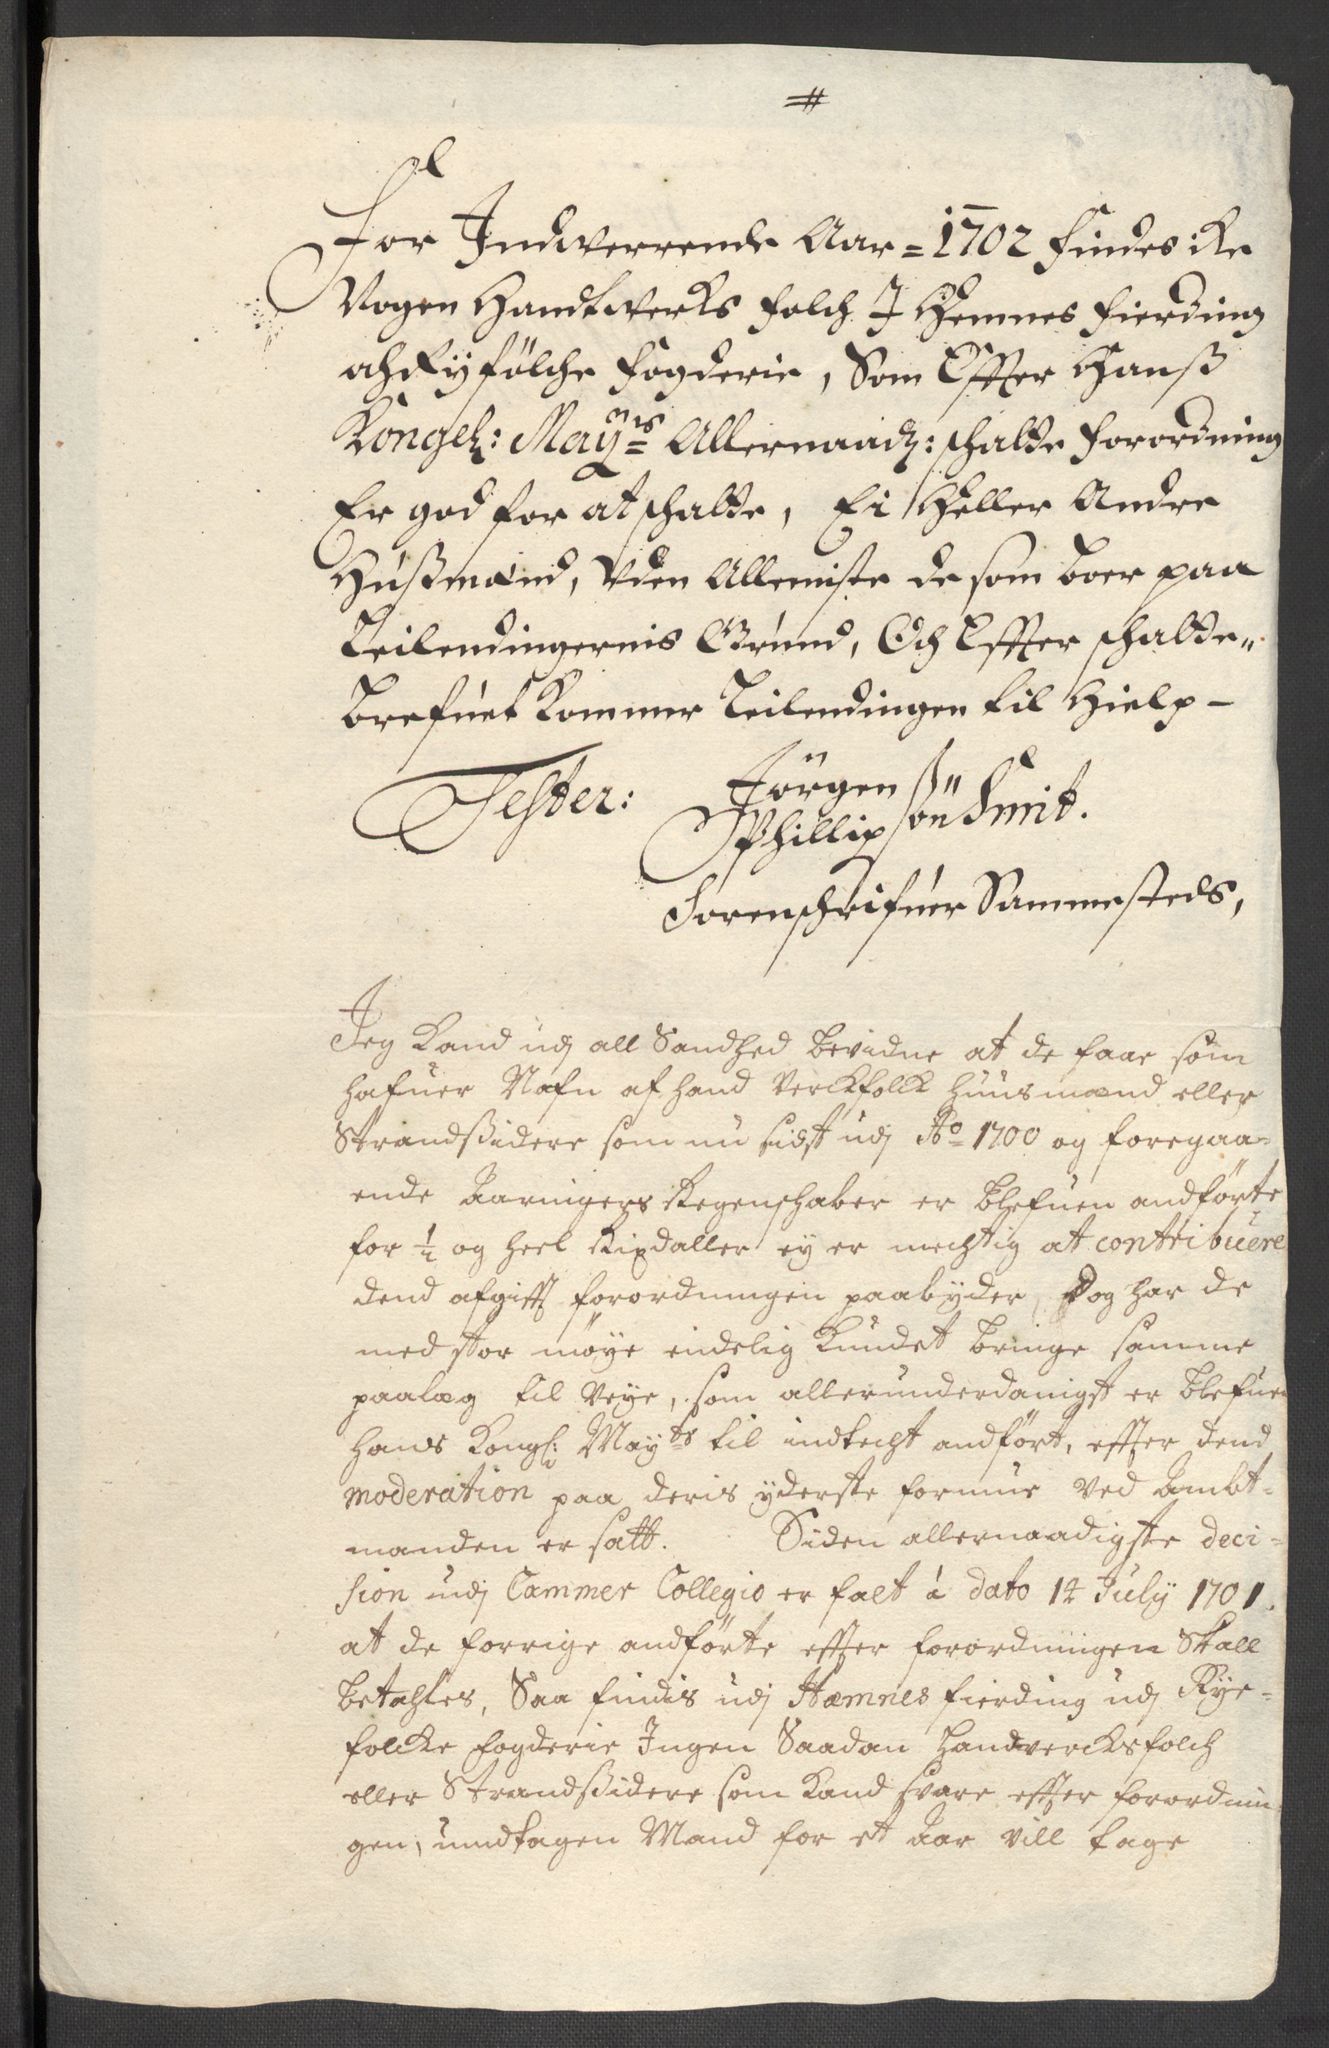 #
For Indwerrende Aar = 1702 findes icke
Nogen Handtwerks folch I Hemnes fierding
och Ryfølche fogderie, Som Effter Hanß
Kongel: May.ts Allernaadg: schatte forordning
Er god for at schatte, Ei heller Andre
Hußmænd, Uden Allemiste de som boer paa
Leilendingernis Grund, Och Effter schatte„
brefuet kommer Leilendingen til Hielp -
Tester: Jørgen
Phillip ßøn Smit.
Sorenschrifuer Sammesteds,
Jeg kand udj all Sandhed bevidne at de faae som
hafuer Nafn af hand Verckfolck huusmænd eller
Strandßidere som nu sidst udj Ao 1700 og foregaa=
ende Aaringers Regenschaber er blefuen andførte
for ½ og heel Rixdaller ey er mechtig at contribuere
dend afgifft forordningen paabyder, Dog har de
med stor møye endelig kundet bringe samme
paalæg til veye, som allerunderdanigst er blefuen
hans Kongl: Mayts til indtecht andført, effter dend
moderation paa deris yderste formue ved Ambt=
manden er satt. Siden allernaadigste deci=
sion udj Cammer Collegio er falt à dato 14 July 1701.
at de forrige andførte effter forordningen Skall
betahles, Saa findis udj Hæmnes fierding udj Rye=
folcke fogderie Ingen Saadan handvercksfolch
eller Strandßidere som kand svare effter forordnin
gen, undtagen Mand for et Aar vill tage